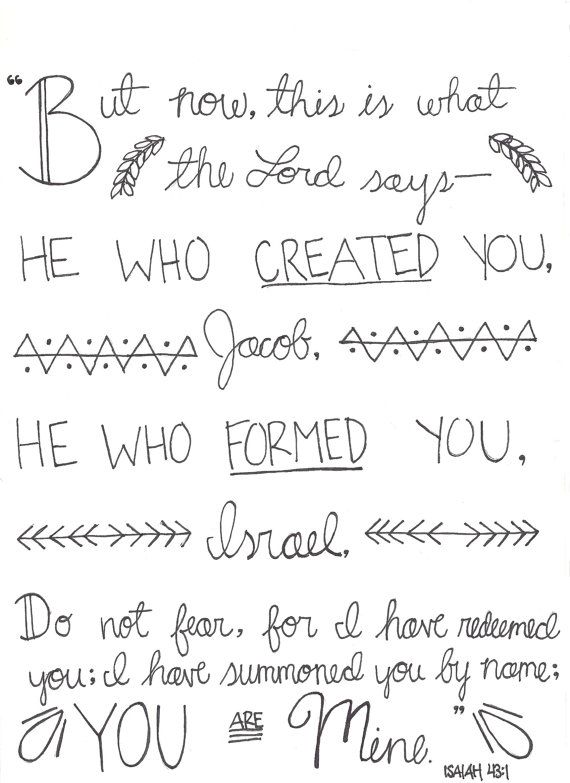 “But now, this is what
the Lord says—
HE WHO CREATED YOU,
Jacob,
HE WHO FORMED YOU,
Israel,
Do not fear, for I have redeemed
you; I have summoned you by name;
YOU ARE Mine.”
ISAIAH 43:1